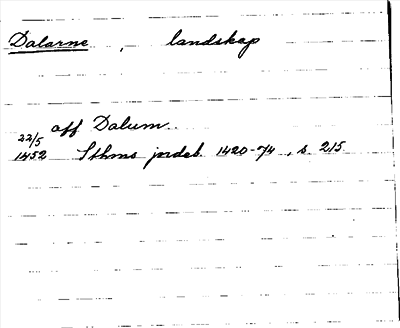 Dalarne , landskap
aff Dalum
22/5
1452 Sthms jordeb. 1420-74, s. 215